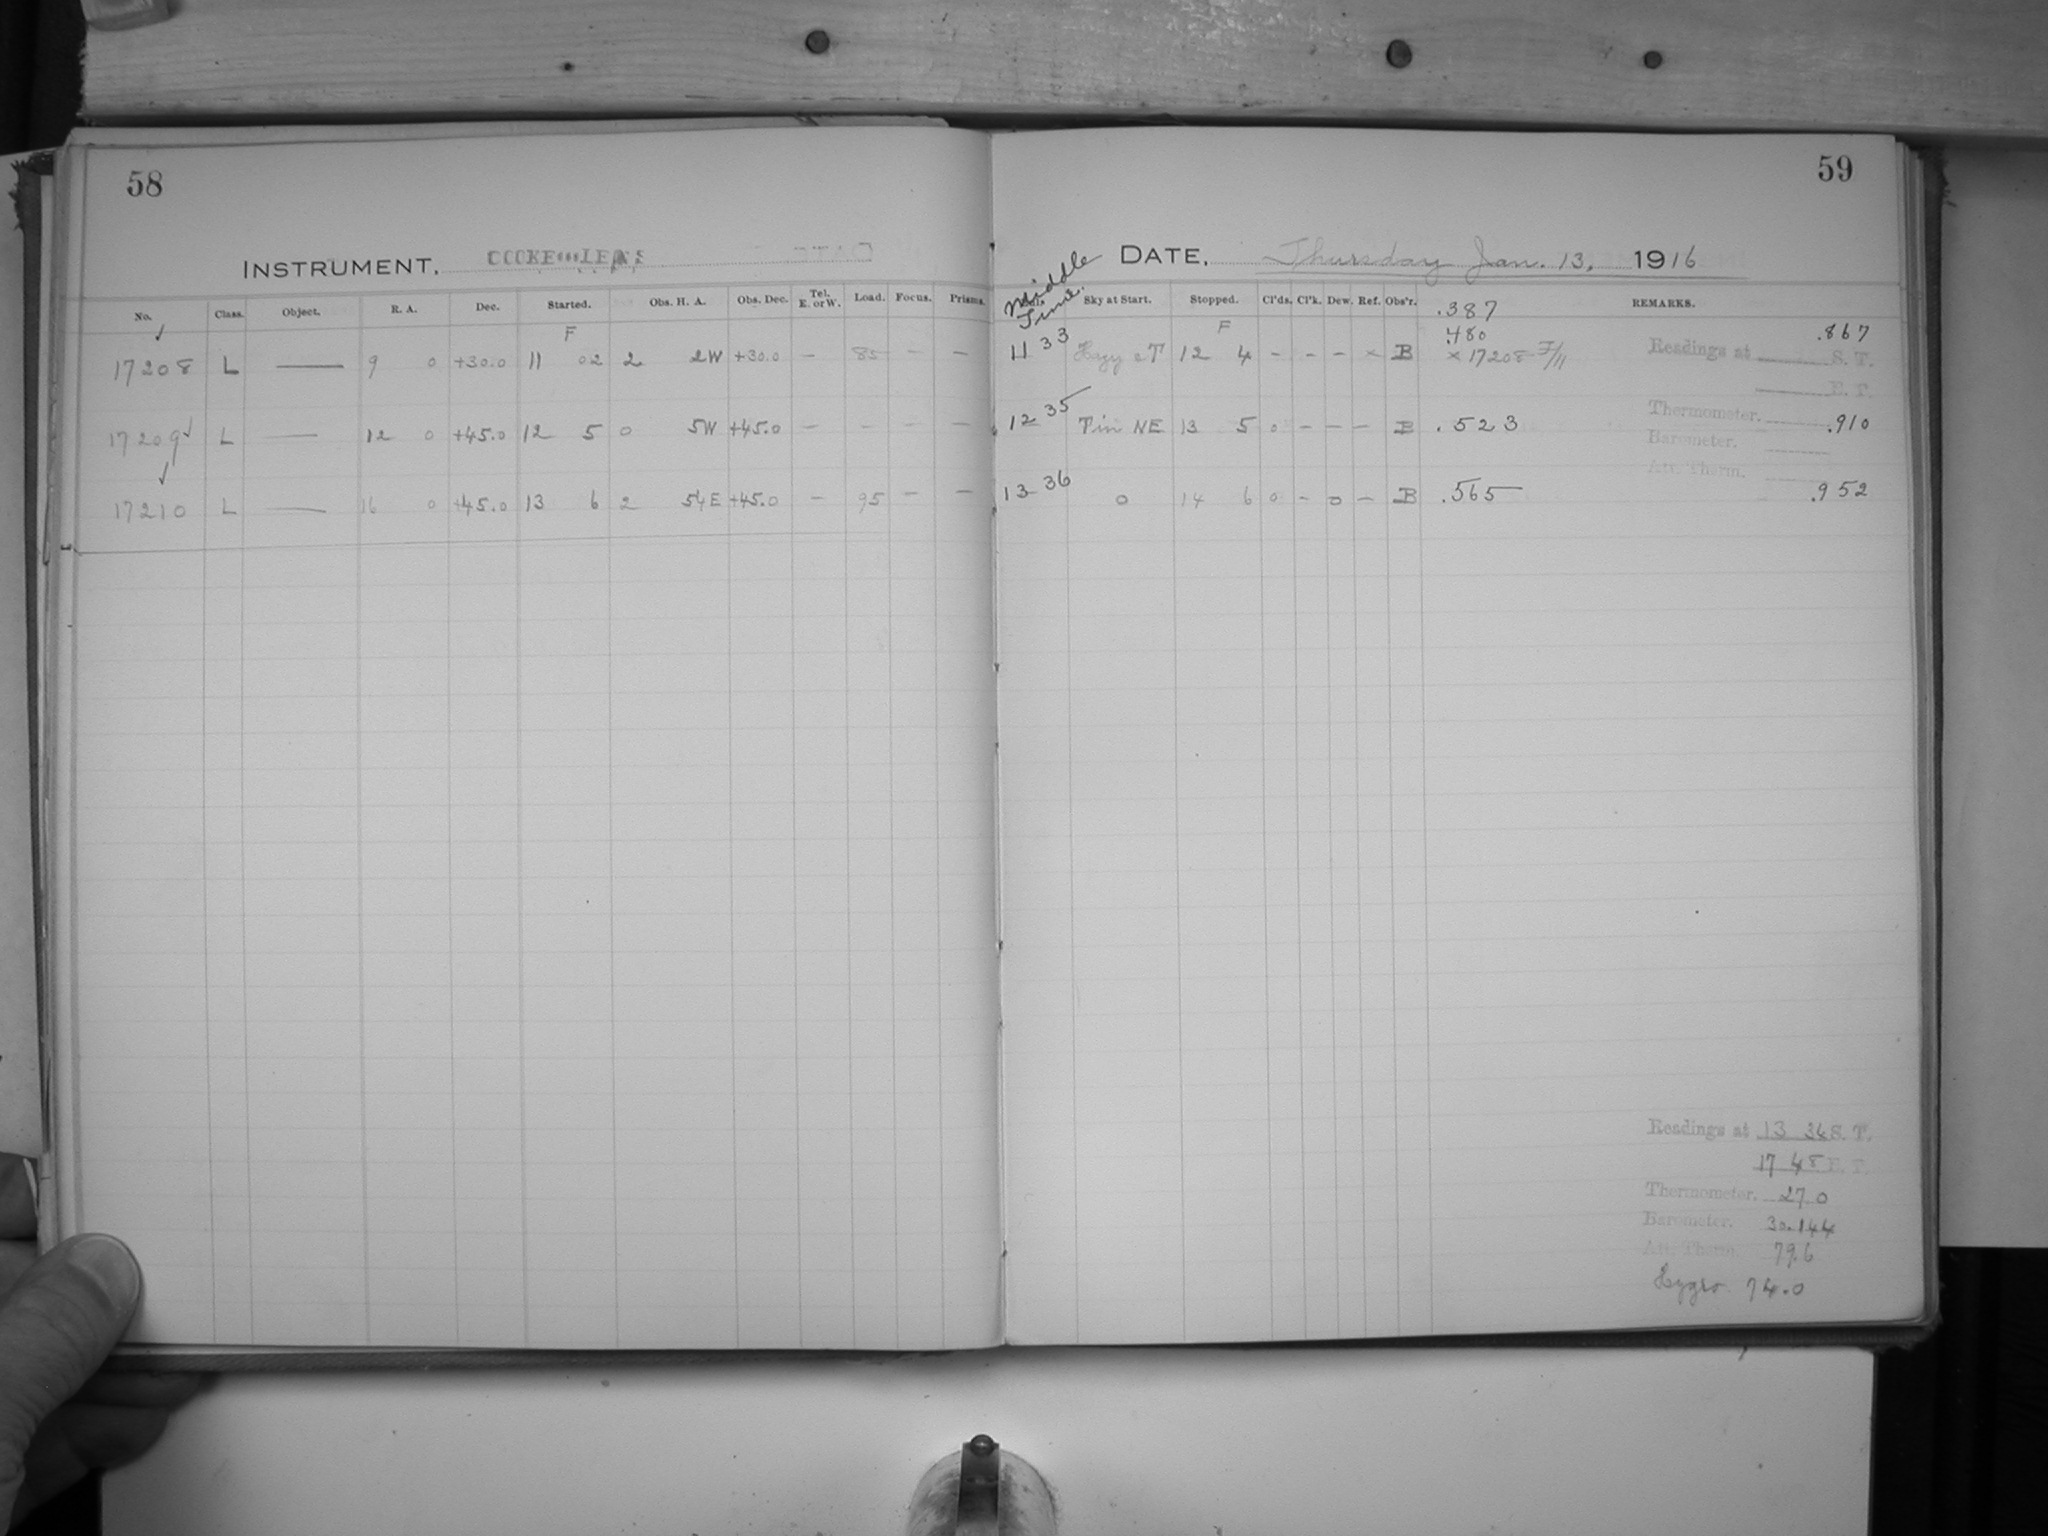 58
INSTRUMENT, COOKE LENS
No. Class. Object. R. A. Dec. Started. Obs. H. A. Obs. Dec. Tel. E. or W. Load. Focus. Prisms.
F
17208 L — 9 0 +30.0 11 02 2 2W +30.0 — 85 — —
17209 L — 12 0 +45.0 12 5 0 5W +45.0 — — — —
17210 L — 16 0 +45.0 13 6 2 54E +45.0 — 95 — —
59
DATE, Thursday Jan. 13, 1916
Middle Time. Sky at Start. Stopped. Cl'ds. Cl'k. Dew. Ref. Obs'r. .387 REMARKS.
F .480 .867
11 33 Hazy 12 4 – – – × B × 17208 F/11 Readings at S. T.
E. T.
12 35 Tin NE 13 5 0 – – – B .523 Thermometer. .910
Barometer.
Att. Therm.
13 36 0 14 6 0 – 0 – B .565 .952
Readings at 13 36 S. T.
17 48 E. T.
Thermometer. 27.0
Barometer. 30.144
Att. Therm. 79.6
Hygro. 74.0